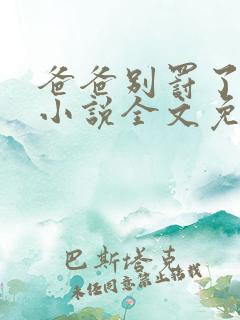 爸爸别罚了
小说全文免
巴斯塔克
未经同意禁止转载